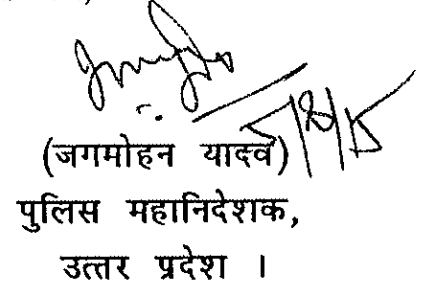 (जगमोहन यादव)
पुलिस महानिदेशक,
उत्तर प्रदेश ।